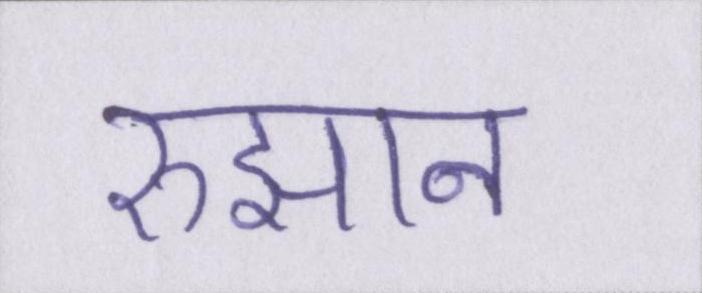 रुझान